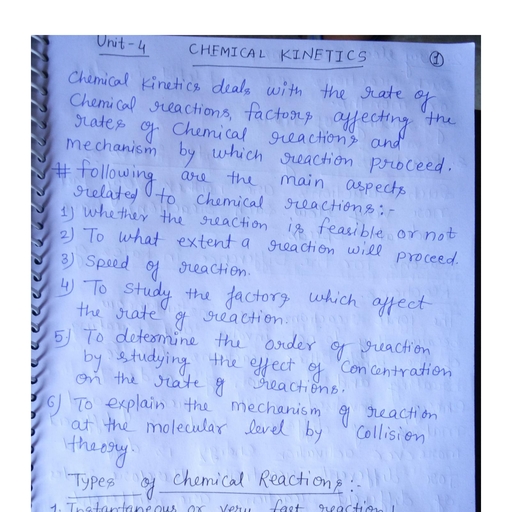 Unit-4 CHEMICAL KINETICS ①
Chemical Kinetics deals with the rate of
Chemical reactions, factors affecting the
rates of Chemical reactions and
mechanism by which reaction proceed.
# following are the main aspects
related to chemical reactions:-
1) whether the reaction is feasible or not
2) To what extent a reaction will proceed.
3) Speed of reaction.
4) To study the factors which affect
the rate of reaction.
5) To determine the order of reaction
by studying the effect of Concentration
on the rate of reactions.
6) To explain the mechanism of reaction
at the molecular level by Collision
theory.
Types of Chemical Reactions:-
1. Instantaneous or very fast reaction: